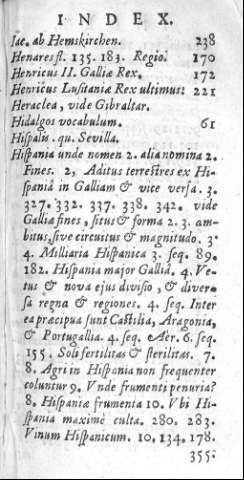 INDEX.
Iac. ab Hemskirchen. 238
Henares fl. 135. 183. Regio. 170
Henricus II. Galliæ Rex. 172
Henricus Lusitaniæ Rex ultimus: 221
Heraclea, vide Gibraltar.
Hidalgos vocabulum. 61
Hispalis. qu. Sevilla.
Hispania unde nomen 2. alia nomina 2.
Fines. 2, Aditus terrestres ex Hi-
spaniâ in Galliam & vice versâ. 3.
327. 332. 337. 338. 342. vide
Galliæ fines, situs & forma 2. 3. am-
bitus, sive circuitus & magnitudo. 3.
4. Milliaria Hispanica 3. seq. 89.
182. Hispania major Galliâ. 4. Ve-
tus & nova ejus divisio, & diver-
sa regna & regiones. 4. seq. Inter
ea præcipua sunt Castilia, Aragonia,
& Portugallia. 4. seq. Aër. 6. seq.
155. Soli fertilitas & sterilitas. 7.
8. Agri in Hispania non frequenter
coluntur 9. Vnde frumenti penuria?
8. Hispaniæ frumenta 10. Vbi Hi-
spania maximè culta. 280. 283.
Vinum Hispanicum. 10. 134. 178.
355.